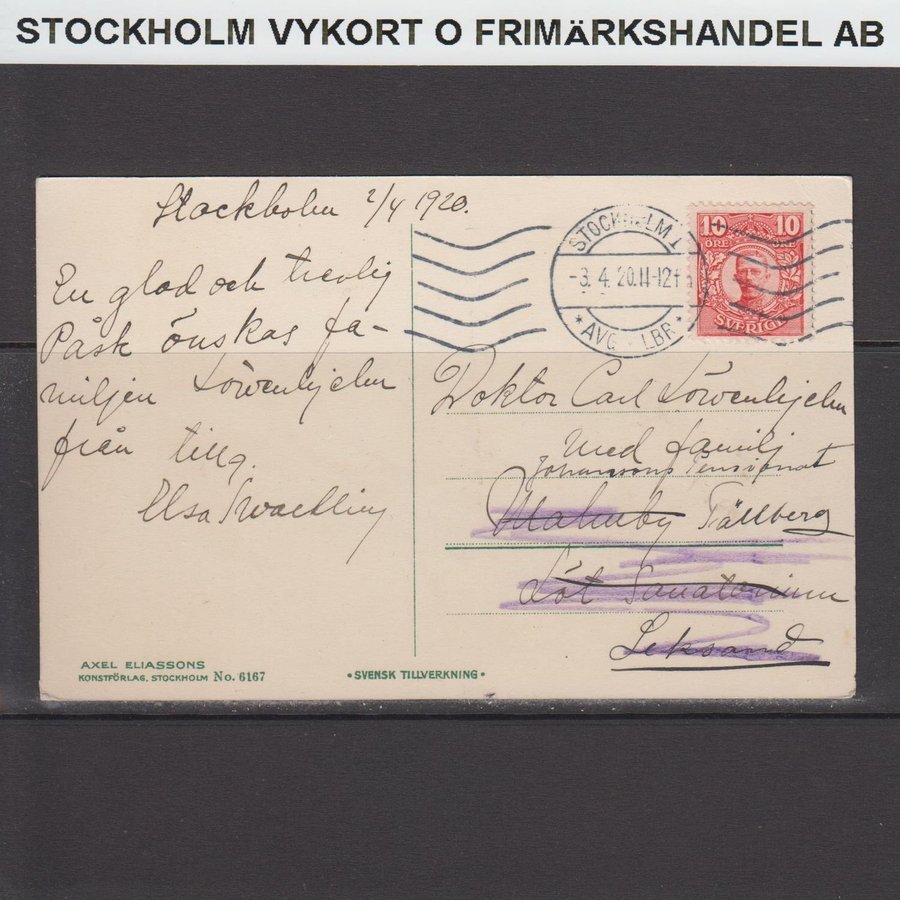 STOCKHOLM VYKORT O FRIMÄRKSHANDEL AB
Stockholm 2/4 1920.
En glad och trevlig
Påsk önskas fa-
miljen Löwenhjelm
från tillg.
Elsa Swartling
AXEL ELIASSONS
KONSTFÖRLAG, STOCKHOLM No. 6167
•SVENSK TILLVERKNING•
STOCKHOLM 1
-3.4.20.11-12f
* AVG. LBR *
10 10
ÖRE
SVERIGE
Doktor Carl Löwenhjelm
med familj
Johanssons Pensionat
Tällberg
Löt Sanatorium
Leksand